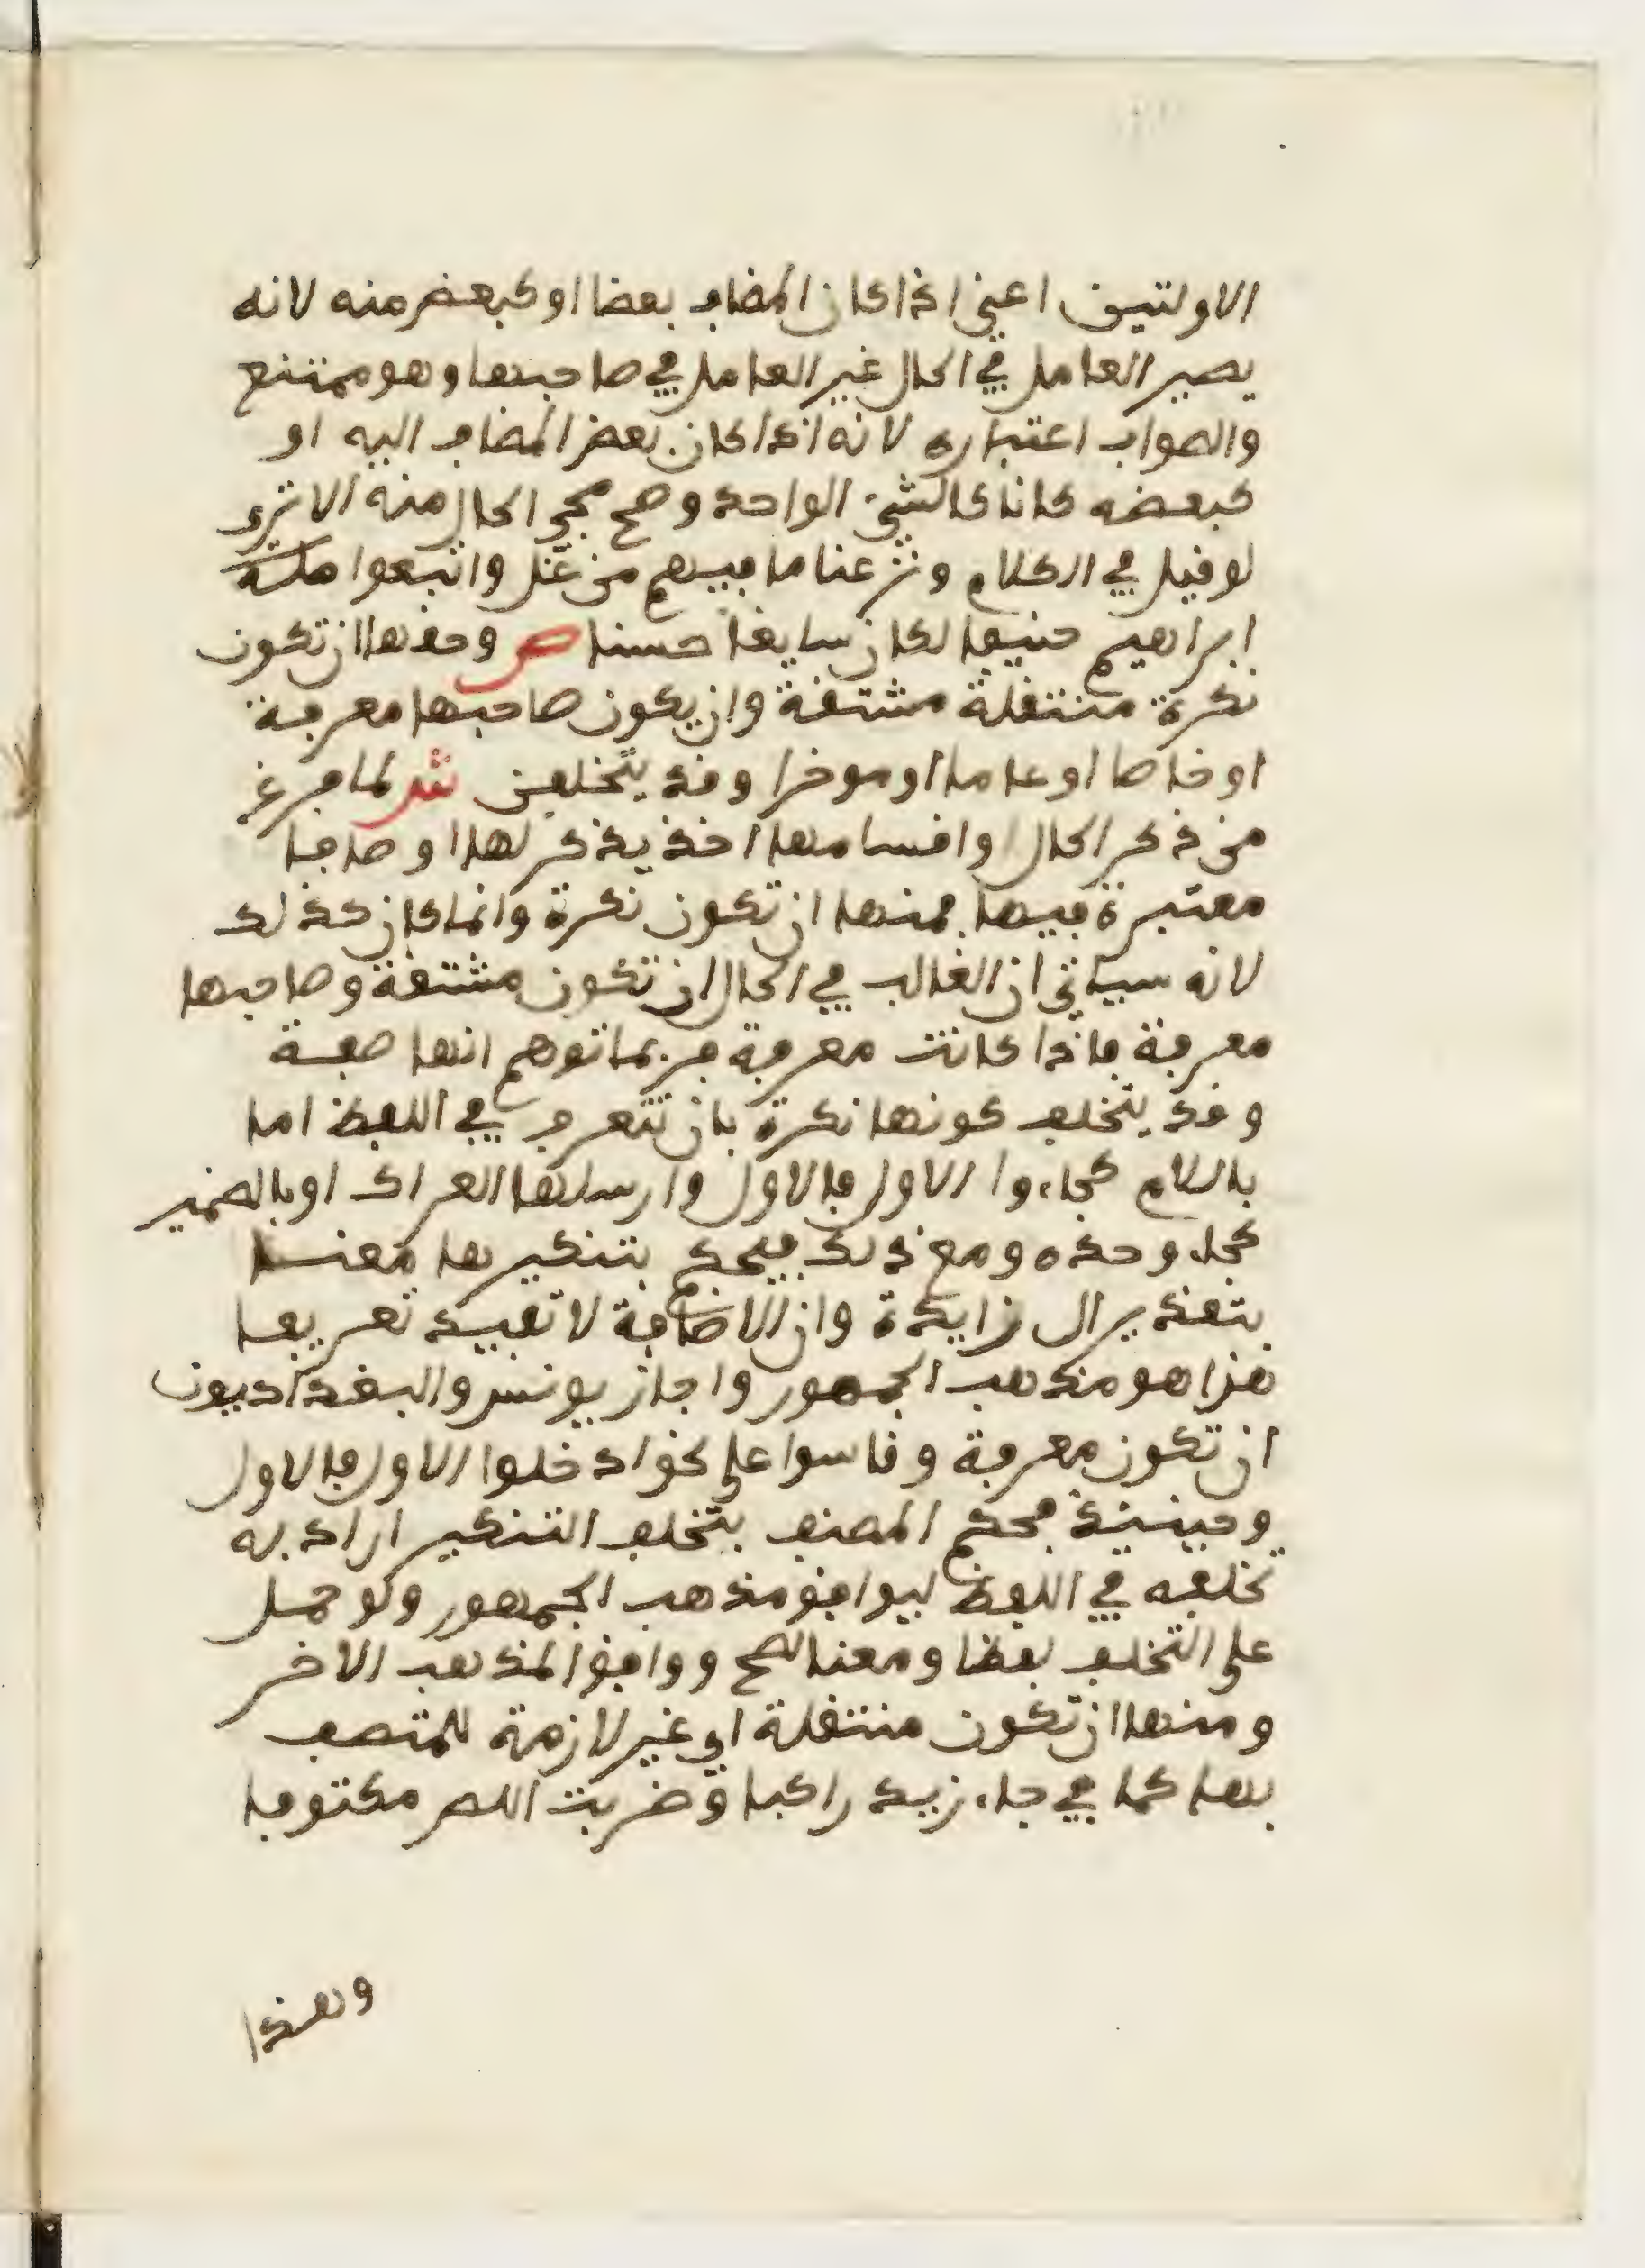 الاولتين اعني اذا كان المضاف بعضا او كبعض منه لانه
يصير العامل في الحال غير العامل في صاحبها وهو ممتنع
والصواب اعتباره لانه اذا كان بعض المضاف اليه او
كبعضه كانا كالشيء الواحد وصح مجي الحال منه الا ترى
لو قيل في الكلام ونزعنا ما فيهم من غل واتبعوا ملة
ابراهيم حنيفا لكان سايغا حسنا ص وحقها ان تكون
نكرة منتقلة مشتقة وان يكون صاحبها معرفة
او خاصا او عاما او موخرا وقد يتخلفن ش لما فرغ
من ذكر الحال واقسامها اخذ يذكر لها اوصافا
معتبرة فيها فمنها ان تكون نكرة وانما كان كذلك
لانه سياتي ان الغالب في الحال ان تكون مشتقة وصاحبها
معرفة فاذا كانت معرفة فربما توهم انها صفة
وقد يتخلف كونها نكرة بان تتعرف في اللفظ اما
باللام كجاءوا الاول فالاول وارسلها العراك او بالضمير
كجاء وحده ومع ذلك فيحكم بتنكيرها معنا
بتقدير ال زايدة وان الاضافة لا تفيد تعريفا
هذا هو مذهب الجمهور واجاز يونس والبغداديون
ان تكون معرفة وقاسوا على نحو ادخلوا الاول فالاول
وحينئذ فحكم المصنف بتخلف التنكير اراد به
تخلفه في اللفظ ليوافق مذهب الجمهور ولو حمل
على التخلف لفظا ومعنا لصح ووافق المذهب الاخر
ومنها ان تكون منتقلة اي غير لازمة للمتصف
بها كما في جاء زيد راكبا وضربت اللص مكتوفا
وهذا